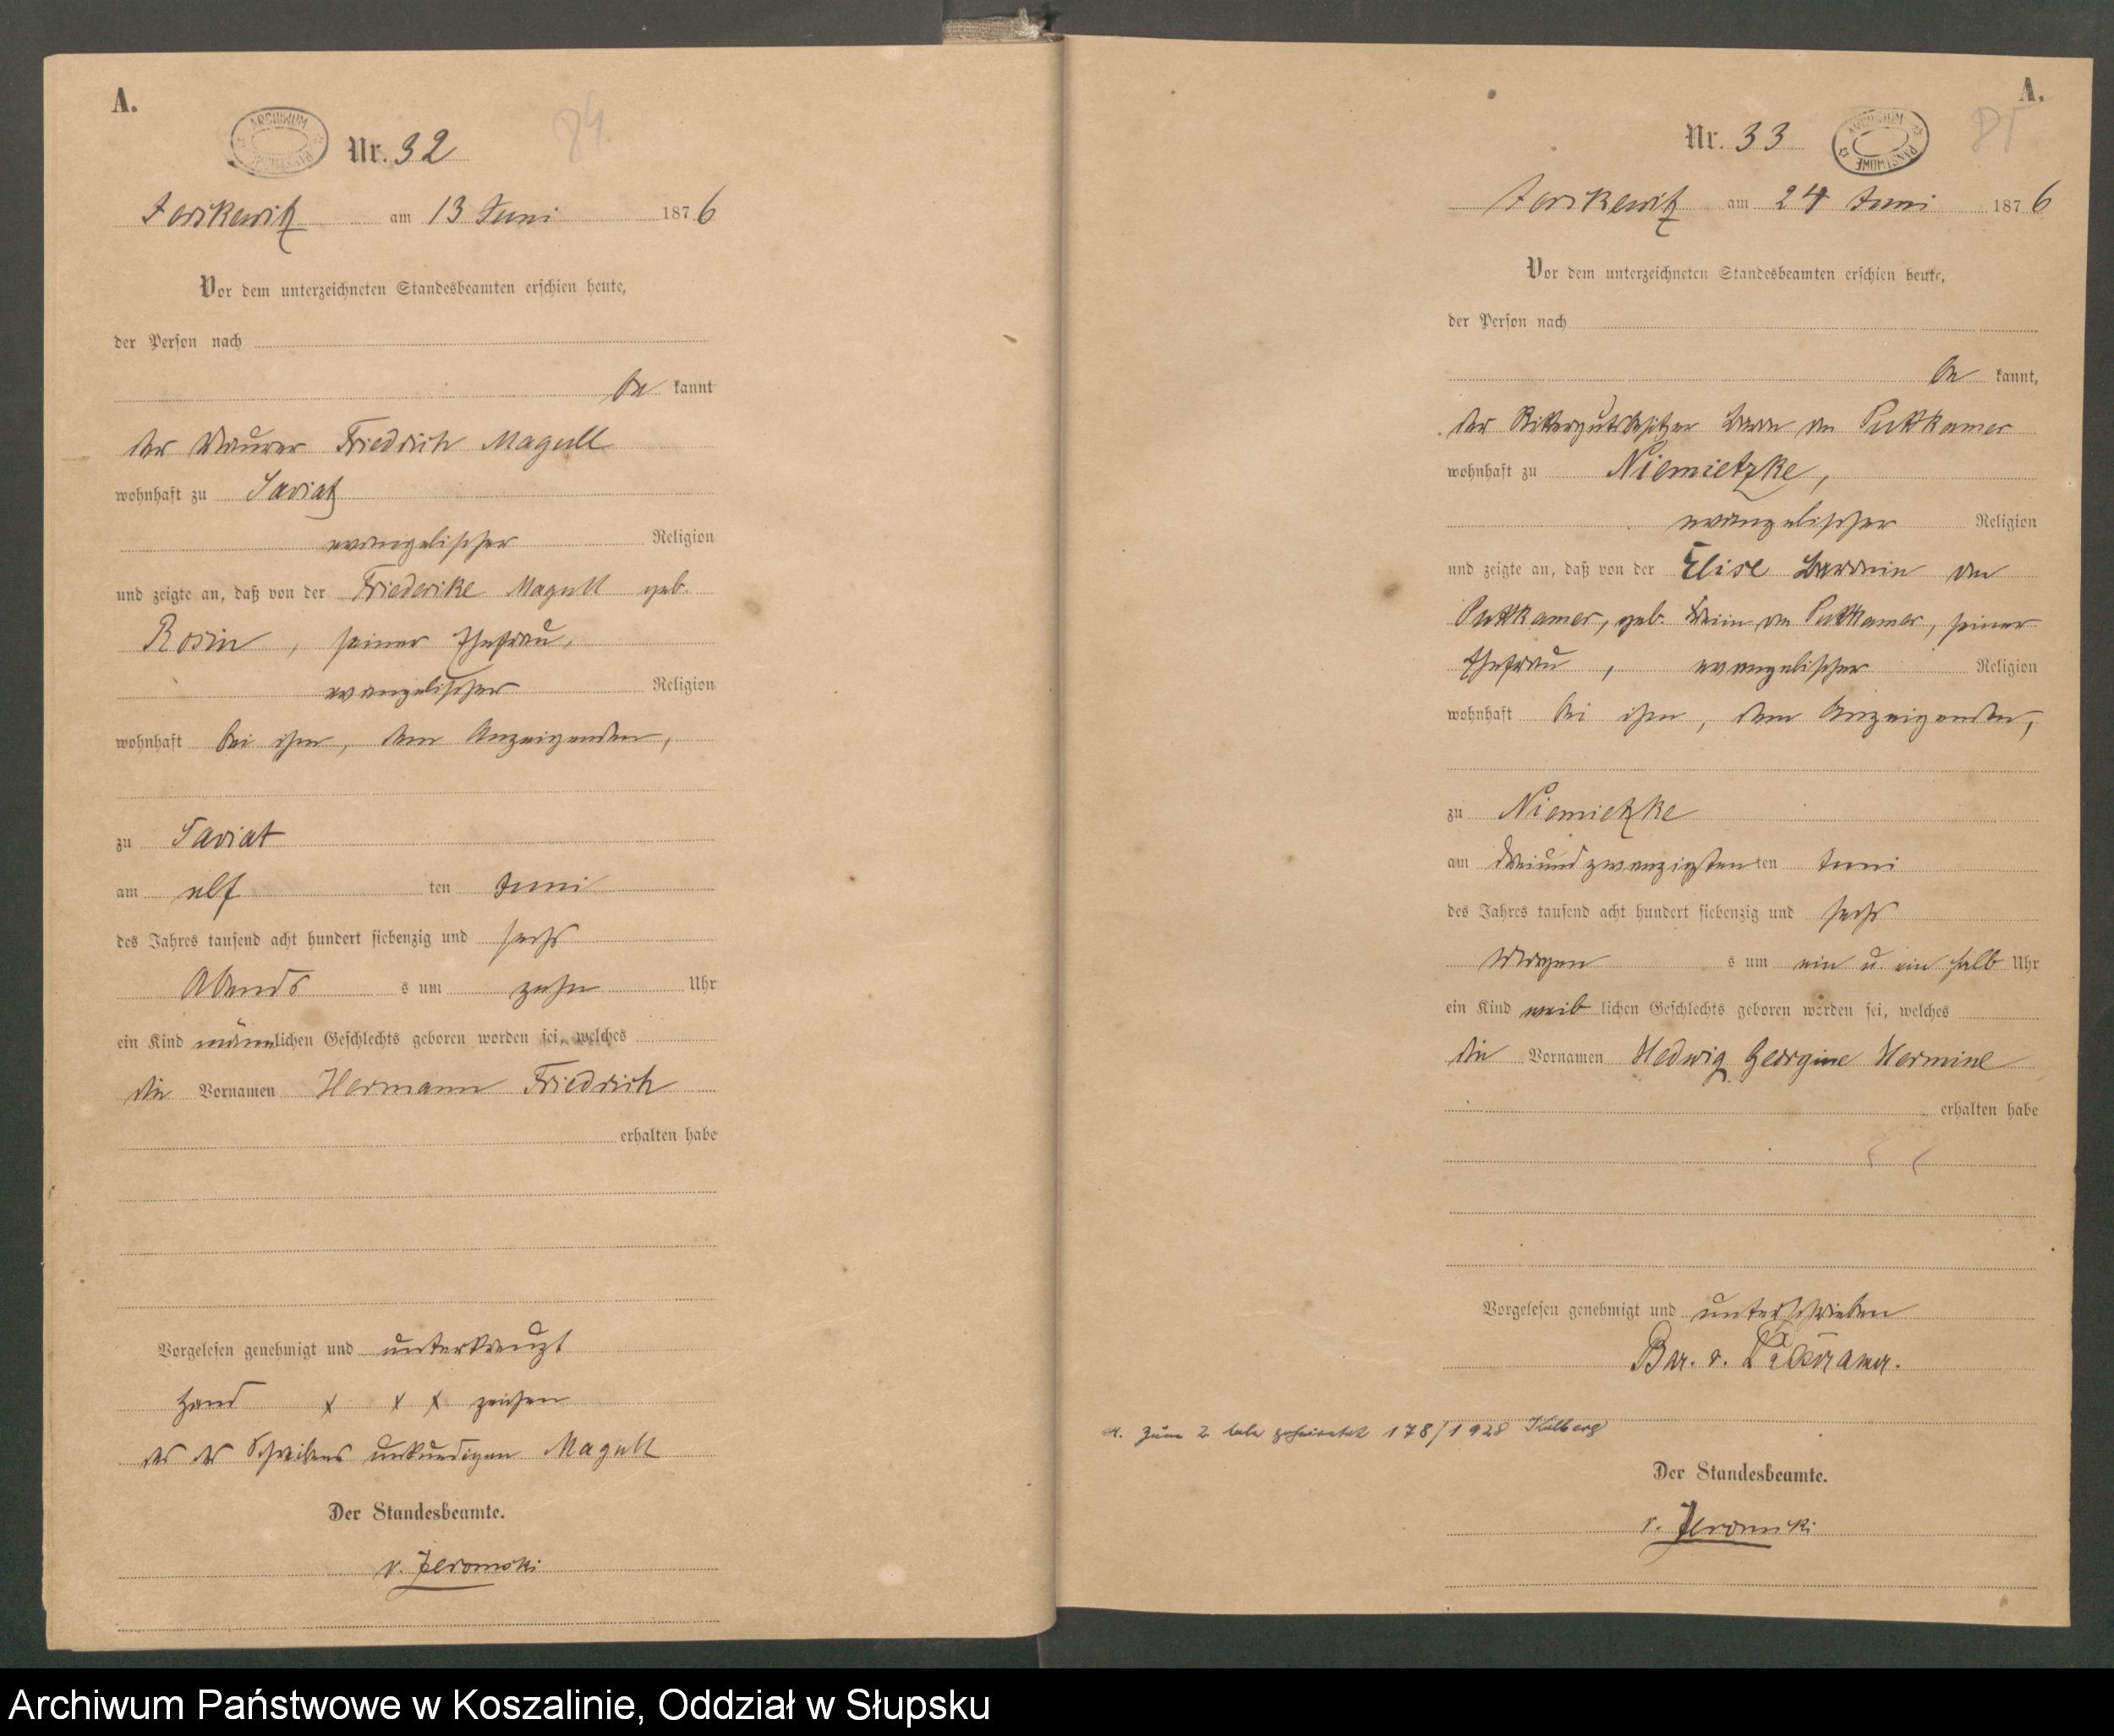 A.
ARCHIWUM
Nr. 32
84
Jerskewitz am 13 Juni 1876
Vor dem unterzeichneten Standesbeamten erschien heute,
der Person nach
be kannt
der Maurer Friedrich Magull
wohnhaft zu Saviat
evangelischer Religion
und zeigte an, daß von der Friederike Magull geb.
Rosin, seiner Ehefrau,
evangelischer Religion
wohnhaft bei ihm, dem Anzeigenden,
zu Saviat
am elf ten Juni
des Jahres tausend acht hundert siebenzig und sechs
Abends s um zehn Uhr
ein Kind männlichen Geschlechts geboren worden sei, welches
die Vornamen Hermann Friedrich
erhalten habe
Vorgelesen genehmigt und unterkreuzt
Hand x x x zeichen
des des Schreibens unkundigen Magull
Der Standesbeamte.
v. Jeromski
A.
Nr. 33
ARCHIWUM PAŃSTWOWE
85
Jerskewitz am 24 Juni 1876
Vor dem unterzeichneten Standesbeamten erschien heute,
der Person nach
be kannt,
der Rittergutsbesitzer Baron von Puttkamer
wohnhaft zu Niemietzke,
evangelischer Religion
und zeigte an, daß von der Elise Baronin von
Puttkamer, geb. von Puttkamer, seiner
Ehefrau, evangelischer Religion
wohnhaft bei ihm, dem Anzeigenden,
zu Niemietzke
am dreiundzwanzigsten ten Juni
des Jahres tausend acht hundert siebenzig und sechs
Morgen s um ein u. ein halb Uhr
ein Kind weib lichen Geschlechts geboren worden sei, welches
die Vornamen Hedwig Georgine Hermine
erhalten habe
Vorgelesen genehmigt und unterschrieben
Bar. v. Puttkamer.
zum 2. geheiratet 178/1928 Kolberg
Der Standesbeamte.
v. Jeromski
Archiwum Państwowe w Koszalinie, Oddział w Słupsku